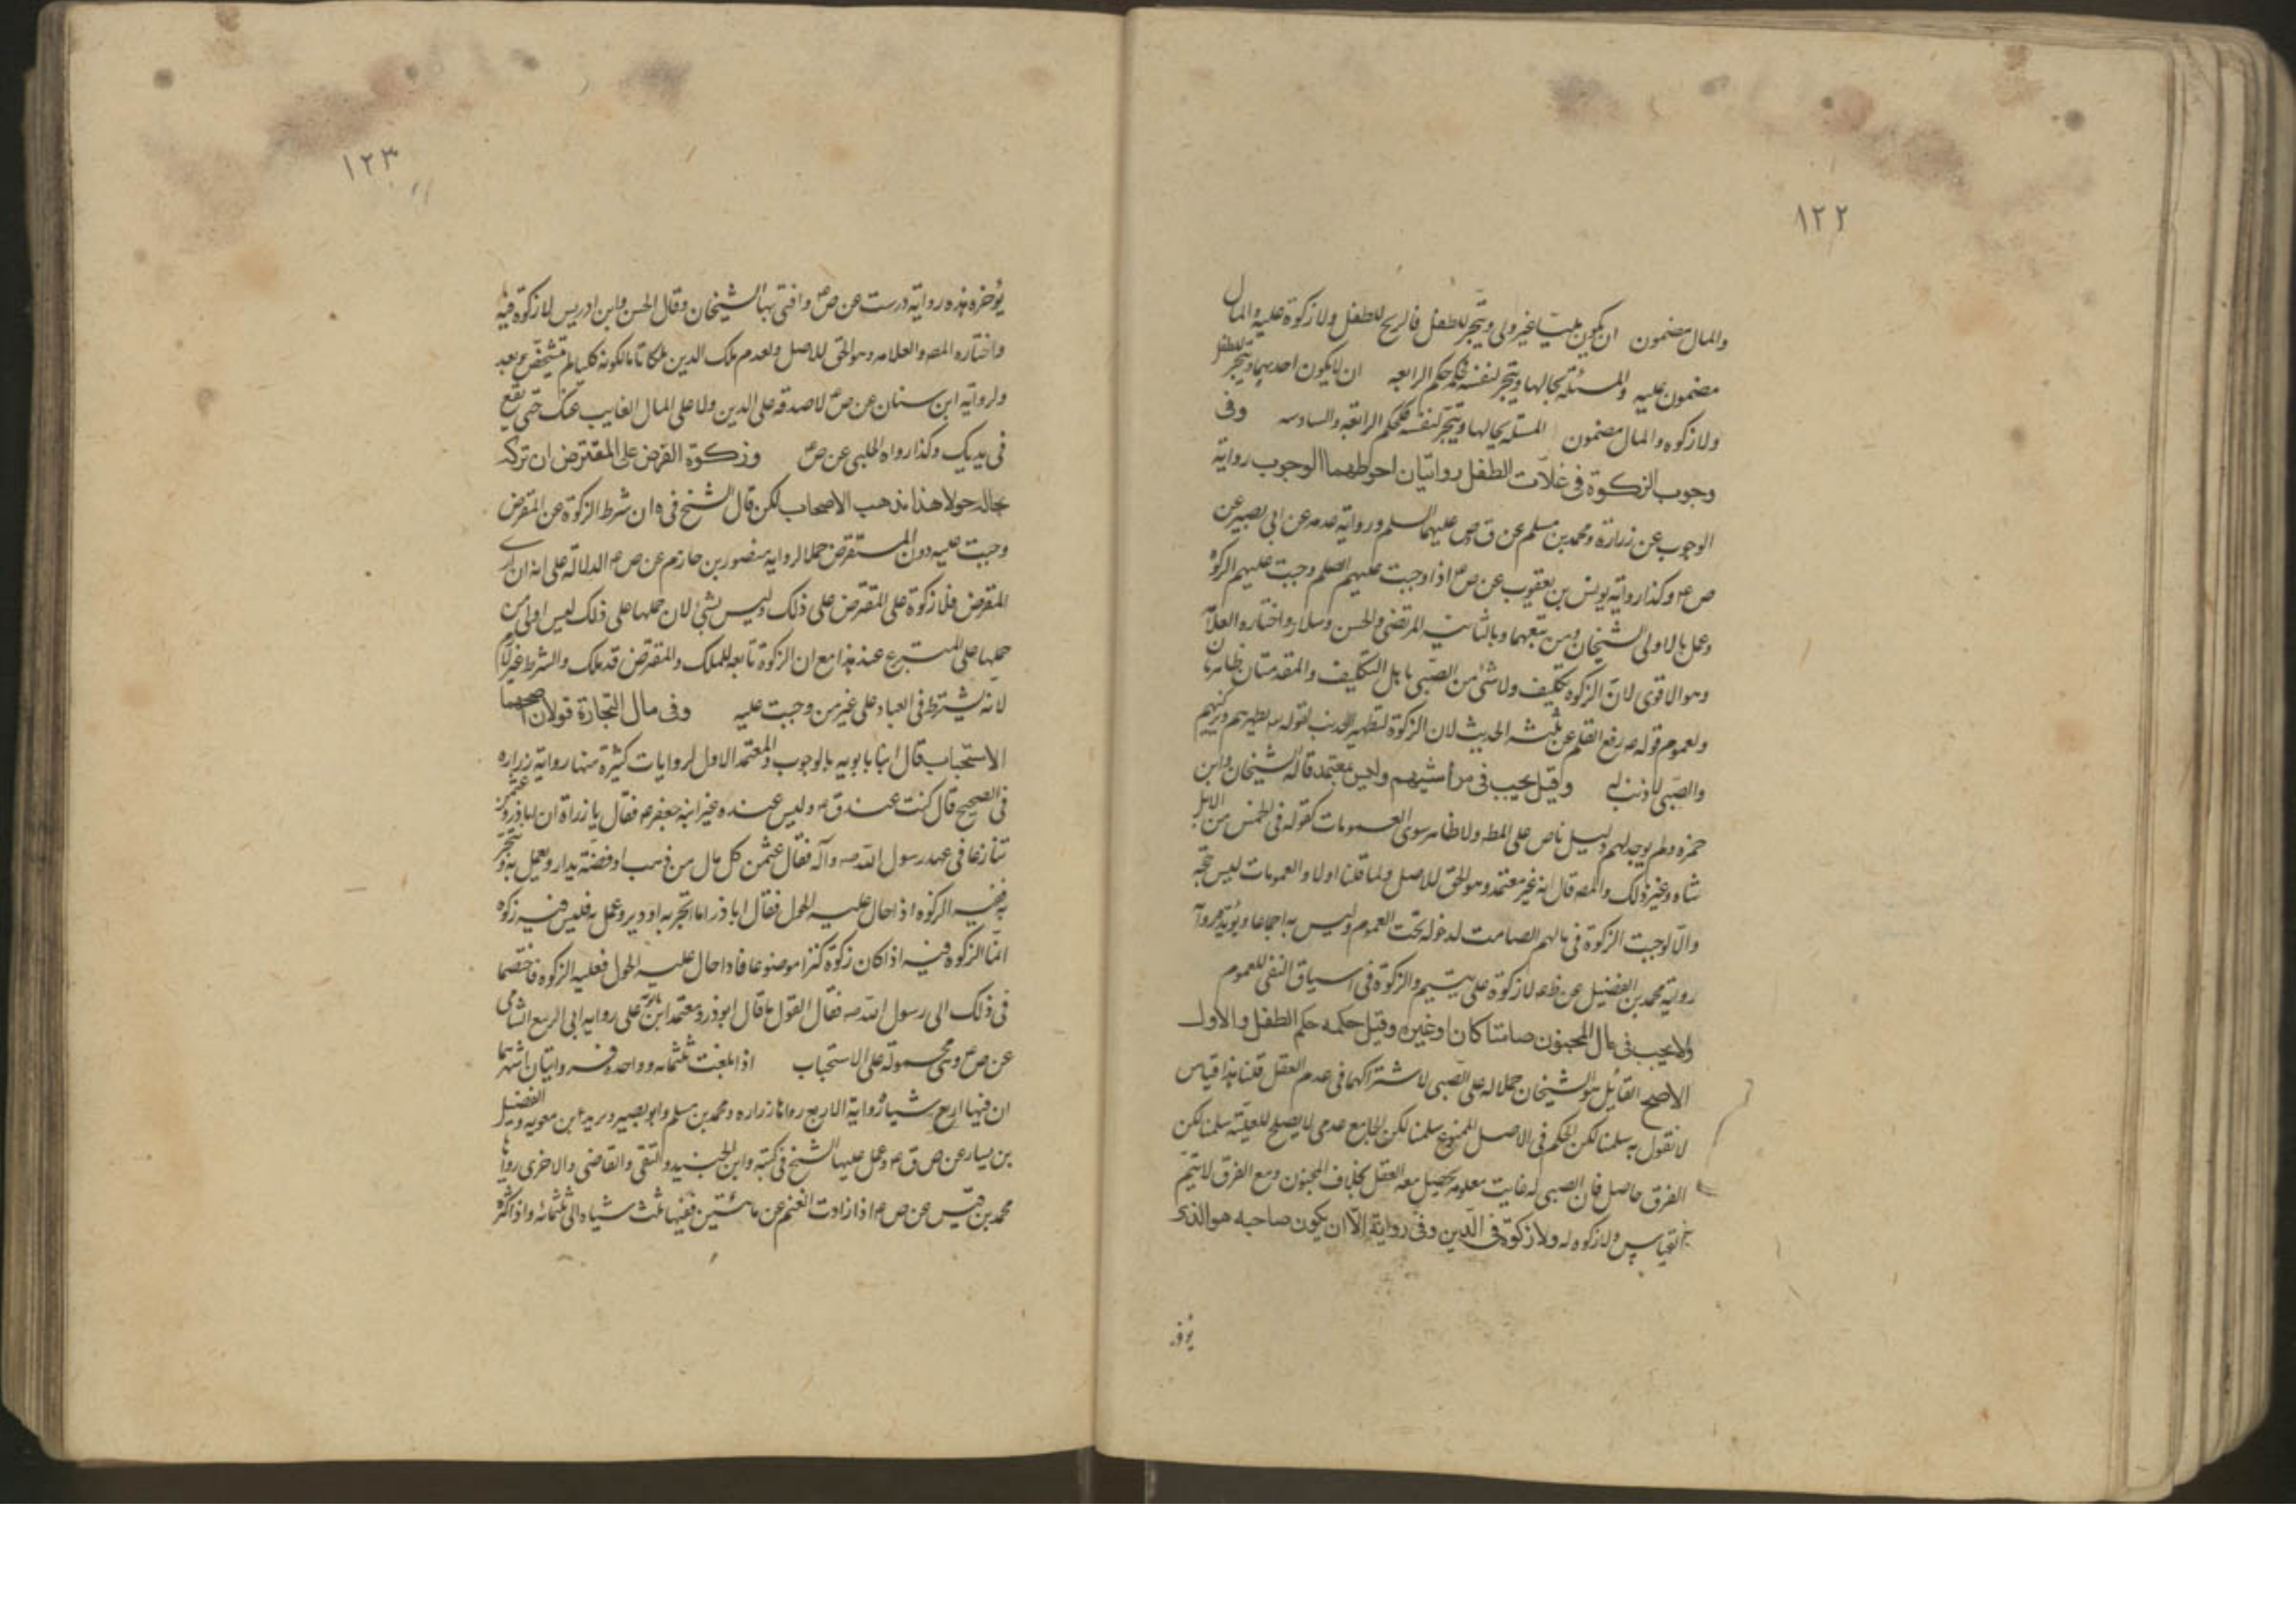 ١٢٢
والمال مضمون ان يكون مليا غير ولى ويتجر للطفل فالربح للطفل ولا زكوة عليه والمال
مضمون عليه والمسئلة بحالها ويتجر لنفسه فحكمه حكم الرابعه ان لا يكون احدهما ويتجر للطفل
ولا زكوه والمال مضمون المسئلة بحالها ويتجر لنفسه فكحكم الرابعة والسادسه وفى
وجوب الزكوة فى غلات الطفل روايتان احوطهما الوجوب رواية
الوجوب عن زرارة ومحمد بن مسلم عن ق وص عليهما السلم ورواية عدمه عن ابى بصير عن
ص ع وكذا رواية يونس بن يعقوب عن ص ع اذا وجبت عليهم الصلم وجبت عليهم الزكوة
وعمل بالاولى الشيخان ومن تبعهما وبالثانيه المرتضى والحسن وسلار واختاره العلامه
وهو الاقوى لان الزكوه تكليف ولا شئ من الصبى باهل التكليف والمقدمتان ظاهرتان
ولعموم قوله ص رفع القلم عن ثلثه الحديث لان الزكوة لتطهير الذنب لقوله تطهرهم وتزكيهم
والصبى لا ذنب له وقيل يجب فى مواشيهم وليس بمعتمد قاله الشيخان وابن
حمزه ولم يوجد لهم دليل ناص على المط ولا ظاهر سوى العمومات كقوله فى الخمس من الابل
شاه وغير ذلك والمصه قال انه غير معتمد وهو الحق للاصل ولما قلنا اولا والعمومات ليس حجة
والا لوجبت الزكوة فى مالهم الصامت لدخوله تحت العموم وليس به اجماعا ويؤيده
رواية محمد بن الفضيل عن ظ لا زكوة على يتيم والزكوة فى سياق النفى للعموم
ولا يجب فى مال المجنون صامتا كان او غيره وقيل حكمه حكم الطفل والاول
الاصح القائل هو الشيخان حملا له على الصبى لاشتراكهما فى عدم العقل قلنا هذا قياس
لا نقول به سلمنا لكن الحكم فى الاصل ممنوع سلمنا لكن الجامع عدمى لا يصلح للعلية سلمنا لكن
الفرق حاصل فان الصبى له غايت معلومه يحصل معه العقل بخلاف المجنون ومع الفرق لا يتم
القياس ولا زكوه له ولا زكوة فى الدين وفى رواية الا ان يكون صاحبه هو الذى
يؤخ
١٢٣
يؤخره هذه رواية درست عن ص ع وافتى بها الشيخان وقال الحسن وابن ادريس لا زكوة فيه
واختاره المصه والعلامه وهو الحق للاصل ولعدم ملك الدين ملكا تاما لكونه كليا لم يتشخص بعد
ولرواية ابن سنان عن ص ع لا صدقه على الدين ولا على المال الغايب عنك حتى يقع
فى يديك وكذا رواه الحلبى عن ص ع وزكوة القرض على المقترض ان تركه
بحاله حولا هذا مذهب الاصحاب لكن قال الشيخ فى ه ان شرط الزكوة عن المقرض
وجبت عليه دون المستقرض حملا لرواية منصور بن حازم عن ص ع الدلالة على انه ان ادى
المقرض فلا زكوة على المقترض على ذلك وليس بشئ لان حملها على ذلك ليس اولى من
حملها على المتبرع عنه هذا مع ان الزكوة تابعه للملك والمقترض قد ملك والشرط غير لازم
لانه يشترط فى العباد على غير من وجبت عليه وفى مال التجارة قولان اصحهما
الاستحباب قال ابنا بابويه بالوجوب والمعتمد الاول لروايات كثيرة منها رواية زراره
فى الصحيح قال كنت عند ق ع وليس عنده غير ابنه جعفر ع فقال يا زراة ان ابا ذر وعثمن
تنازعا فى عهد رسول الله ص وآله فقال عثمن كل مال من ذهب او فضة يدار ويعمل به ويتجر
به ففيه الزكوه اذا حال عليه الحول فقال ابا ذر اما اتجر به او دير وعمل به فليس فيه زكوه
انما الزكوه فيه اذا كان زكوة كنزا موضوعا فاذا حال عليه الحول فعليه الزكوه فاختصما
فى ذلك الى رسول الله ص فقال القول ما قال ابو ذر ومعتمد ابن بابويه على روايه ابى الربيع الشامى
عن ص ع وهى محموله على الاستحباب اذا بلغت ثلثمائه وواحده فروايتان اشهرهما
ان فيها اربع شياه رواية الاربع رواها زراره ومحمد بن مسلم وابو بصير وبريد ابن معويه والفضيل
بن يسار عن ص ق ع وعمل عليها الشيخ فى كتبه وابن الجنيد والتقى والقاضى والاخرى رواها
محمد بن قيس عن ص ع اذا زادت الغنم عن مائتين ففيها ثلث شياه الى ثلثمائه واذا كثر